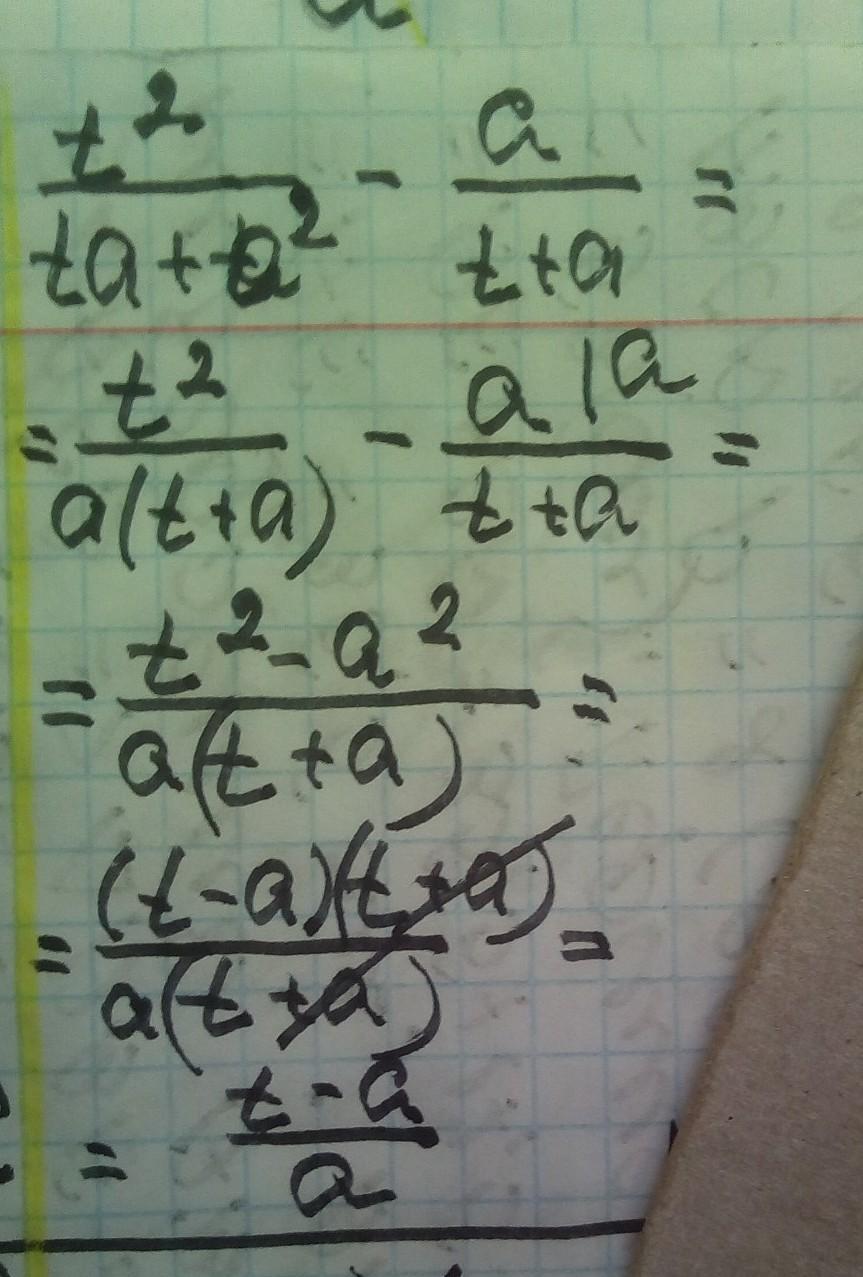 t²/(ta+a²) - a/(t+a) =
= t²/(a(t+a)) - a|a/(t+a) =
= (t²-a²)/(a(t+a)) =
= (t-a)(t+a)/(a(t+a)) =
= (t-a)/a